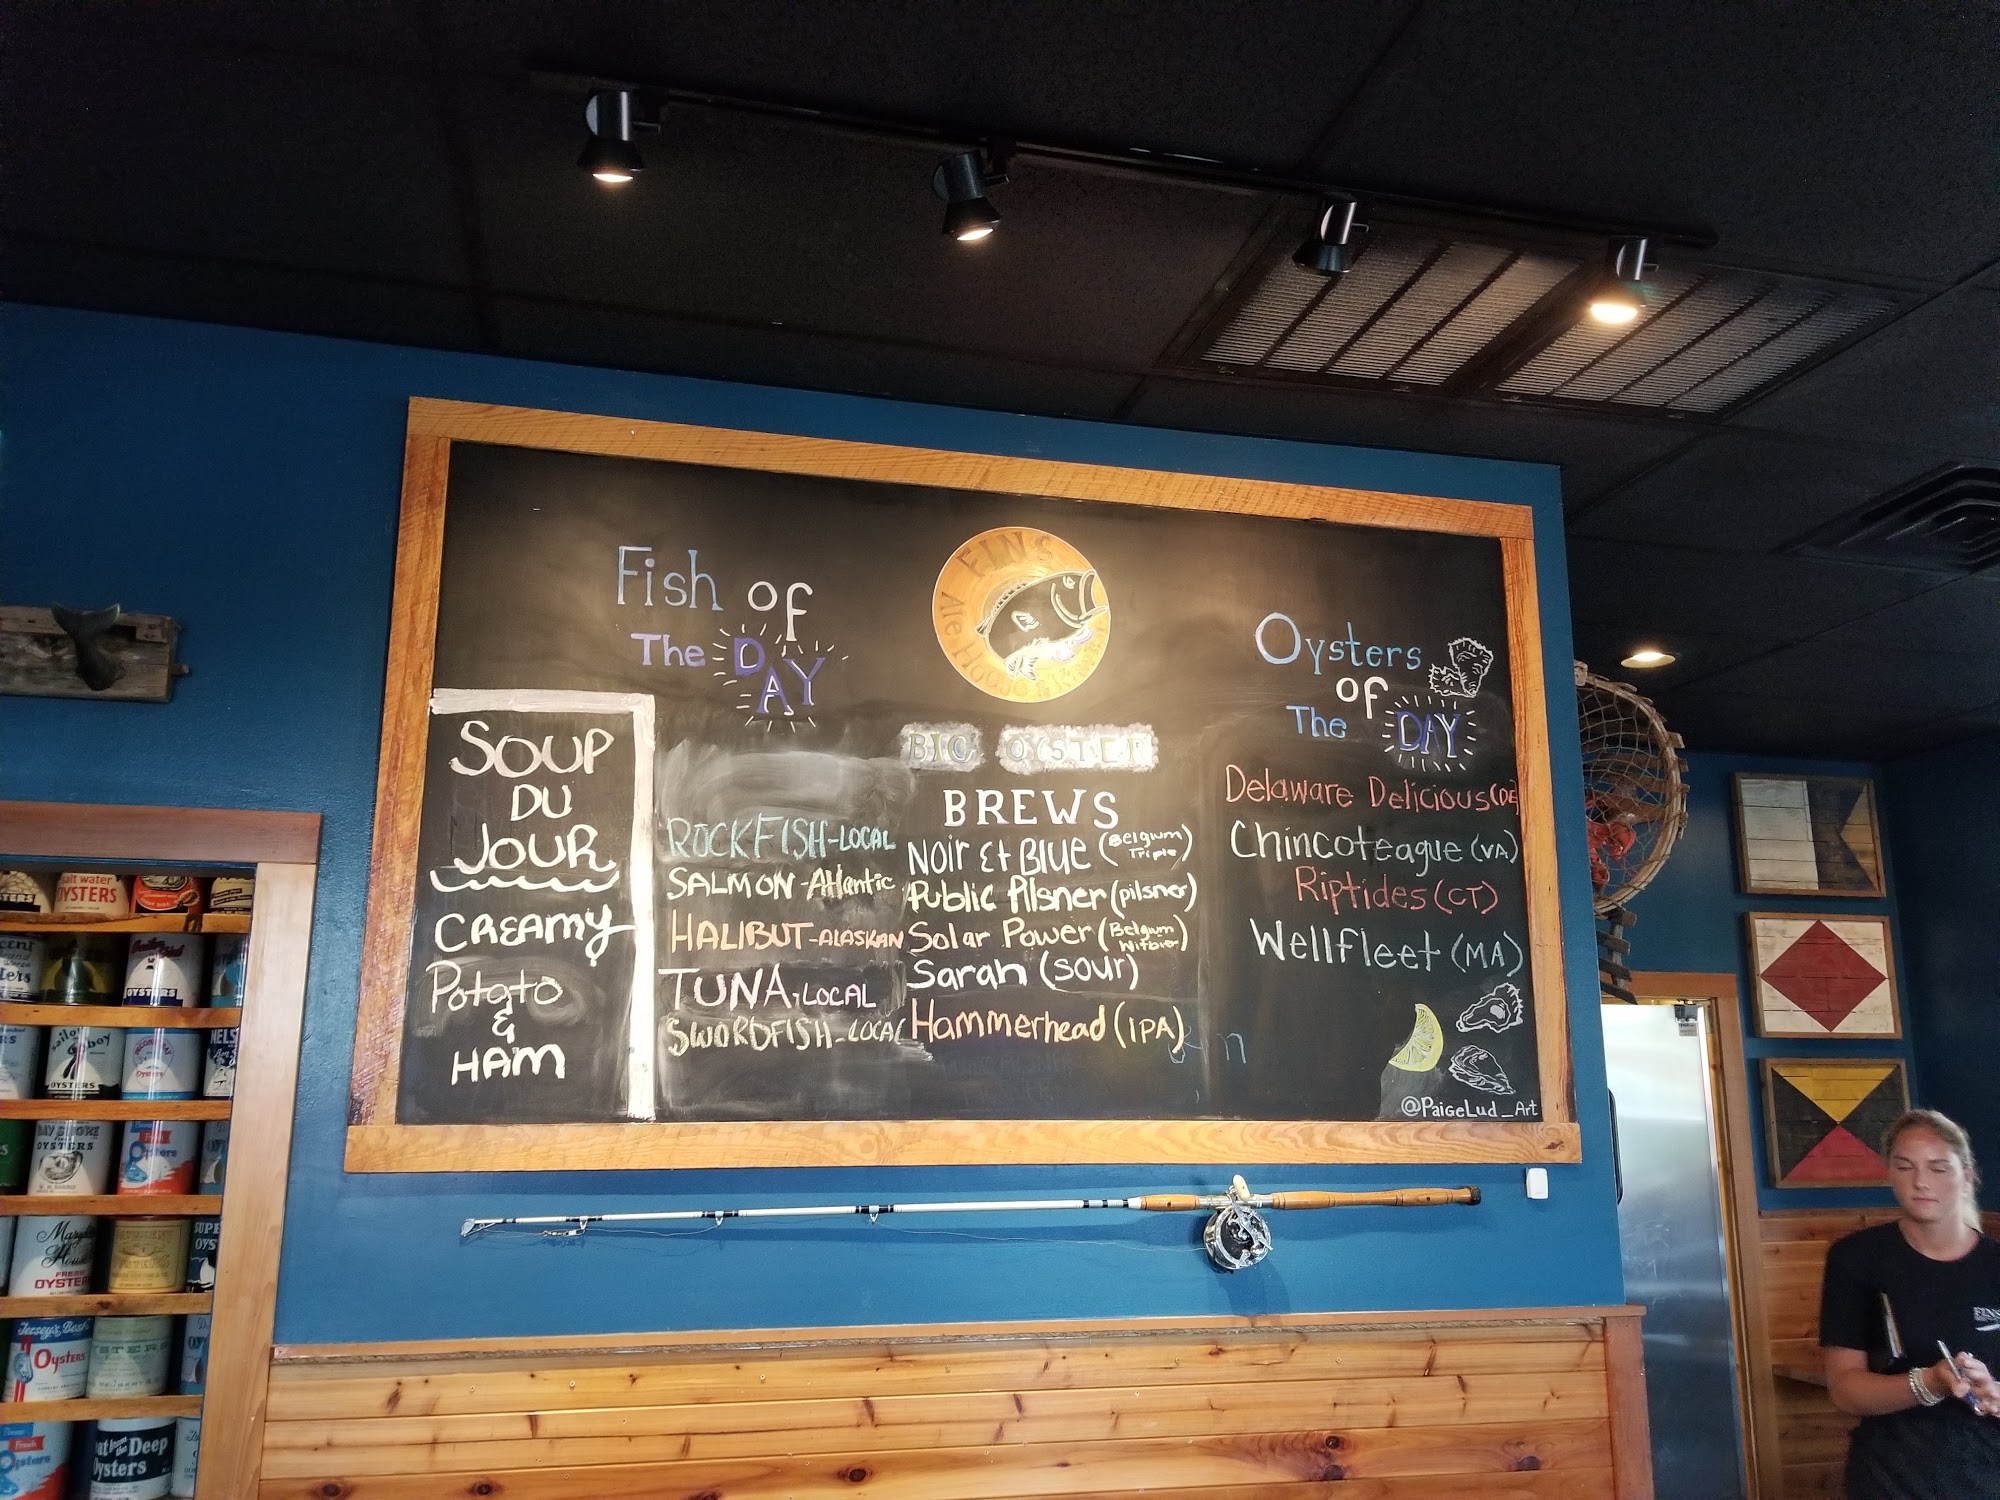 Fish of
The DAY
FINS
Ale House & Raw Bar
Oysters
of
The DAY
SOUP
DU
JOUR
CREAMY
Potato
&
HAM
ROCKFISH-LOCAL
SALMON-Atlantic
HALIBUT-ALASKAN
TUNA-LOCAL
SWORDFISH-LOCAL
BIG OYSTER
BREWS
Noir Et Blue (Belgium Triple)
Public Pilsner (pilsner)
Solar Power (Belgium Witbier)
Sarah (sour)
Hammerhead (IPA)
Delaware Delicious (DE)
Chincoteague (VA)
Riptides (CT)
Wellfleet (MA)
@PaigeLud_Art
salt water
OYSTERS
OYSTERS
sailor boy
OYSTERS
Oysters
NELS
BAY SHORE
OYSTERS
Maryland
House
FRESH
OYSTERS
SUPE
OYS
Jersey's Best
Oysters
Fresh
Oysters
at from the Deep
Oysters
FINS